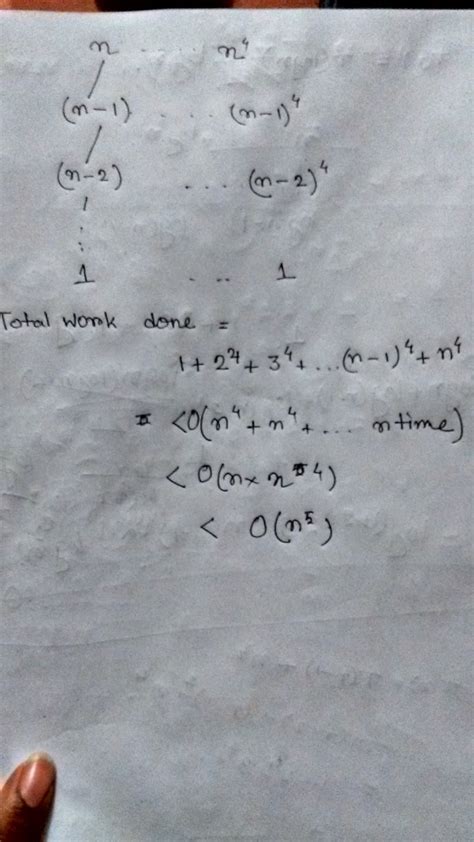 n ..... n⁴
(n-1) ... (n-1)⁴
(n-2) ... (n-2)⁴
1 .... 1
Total work done =
1 + 2⁴ + 3⁴ + ...(n-1)⁴ + n⁴
= <O(n⁴ + n⁴ + ... n time)
< O(n × n⁴)
< O(n⁵)